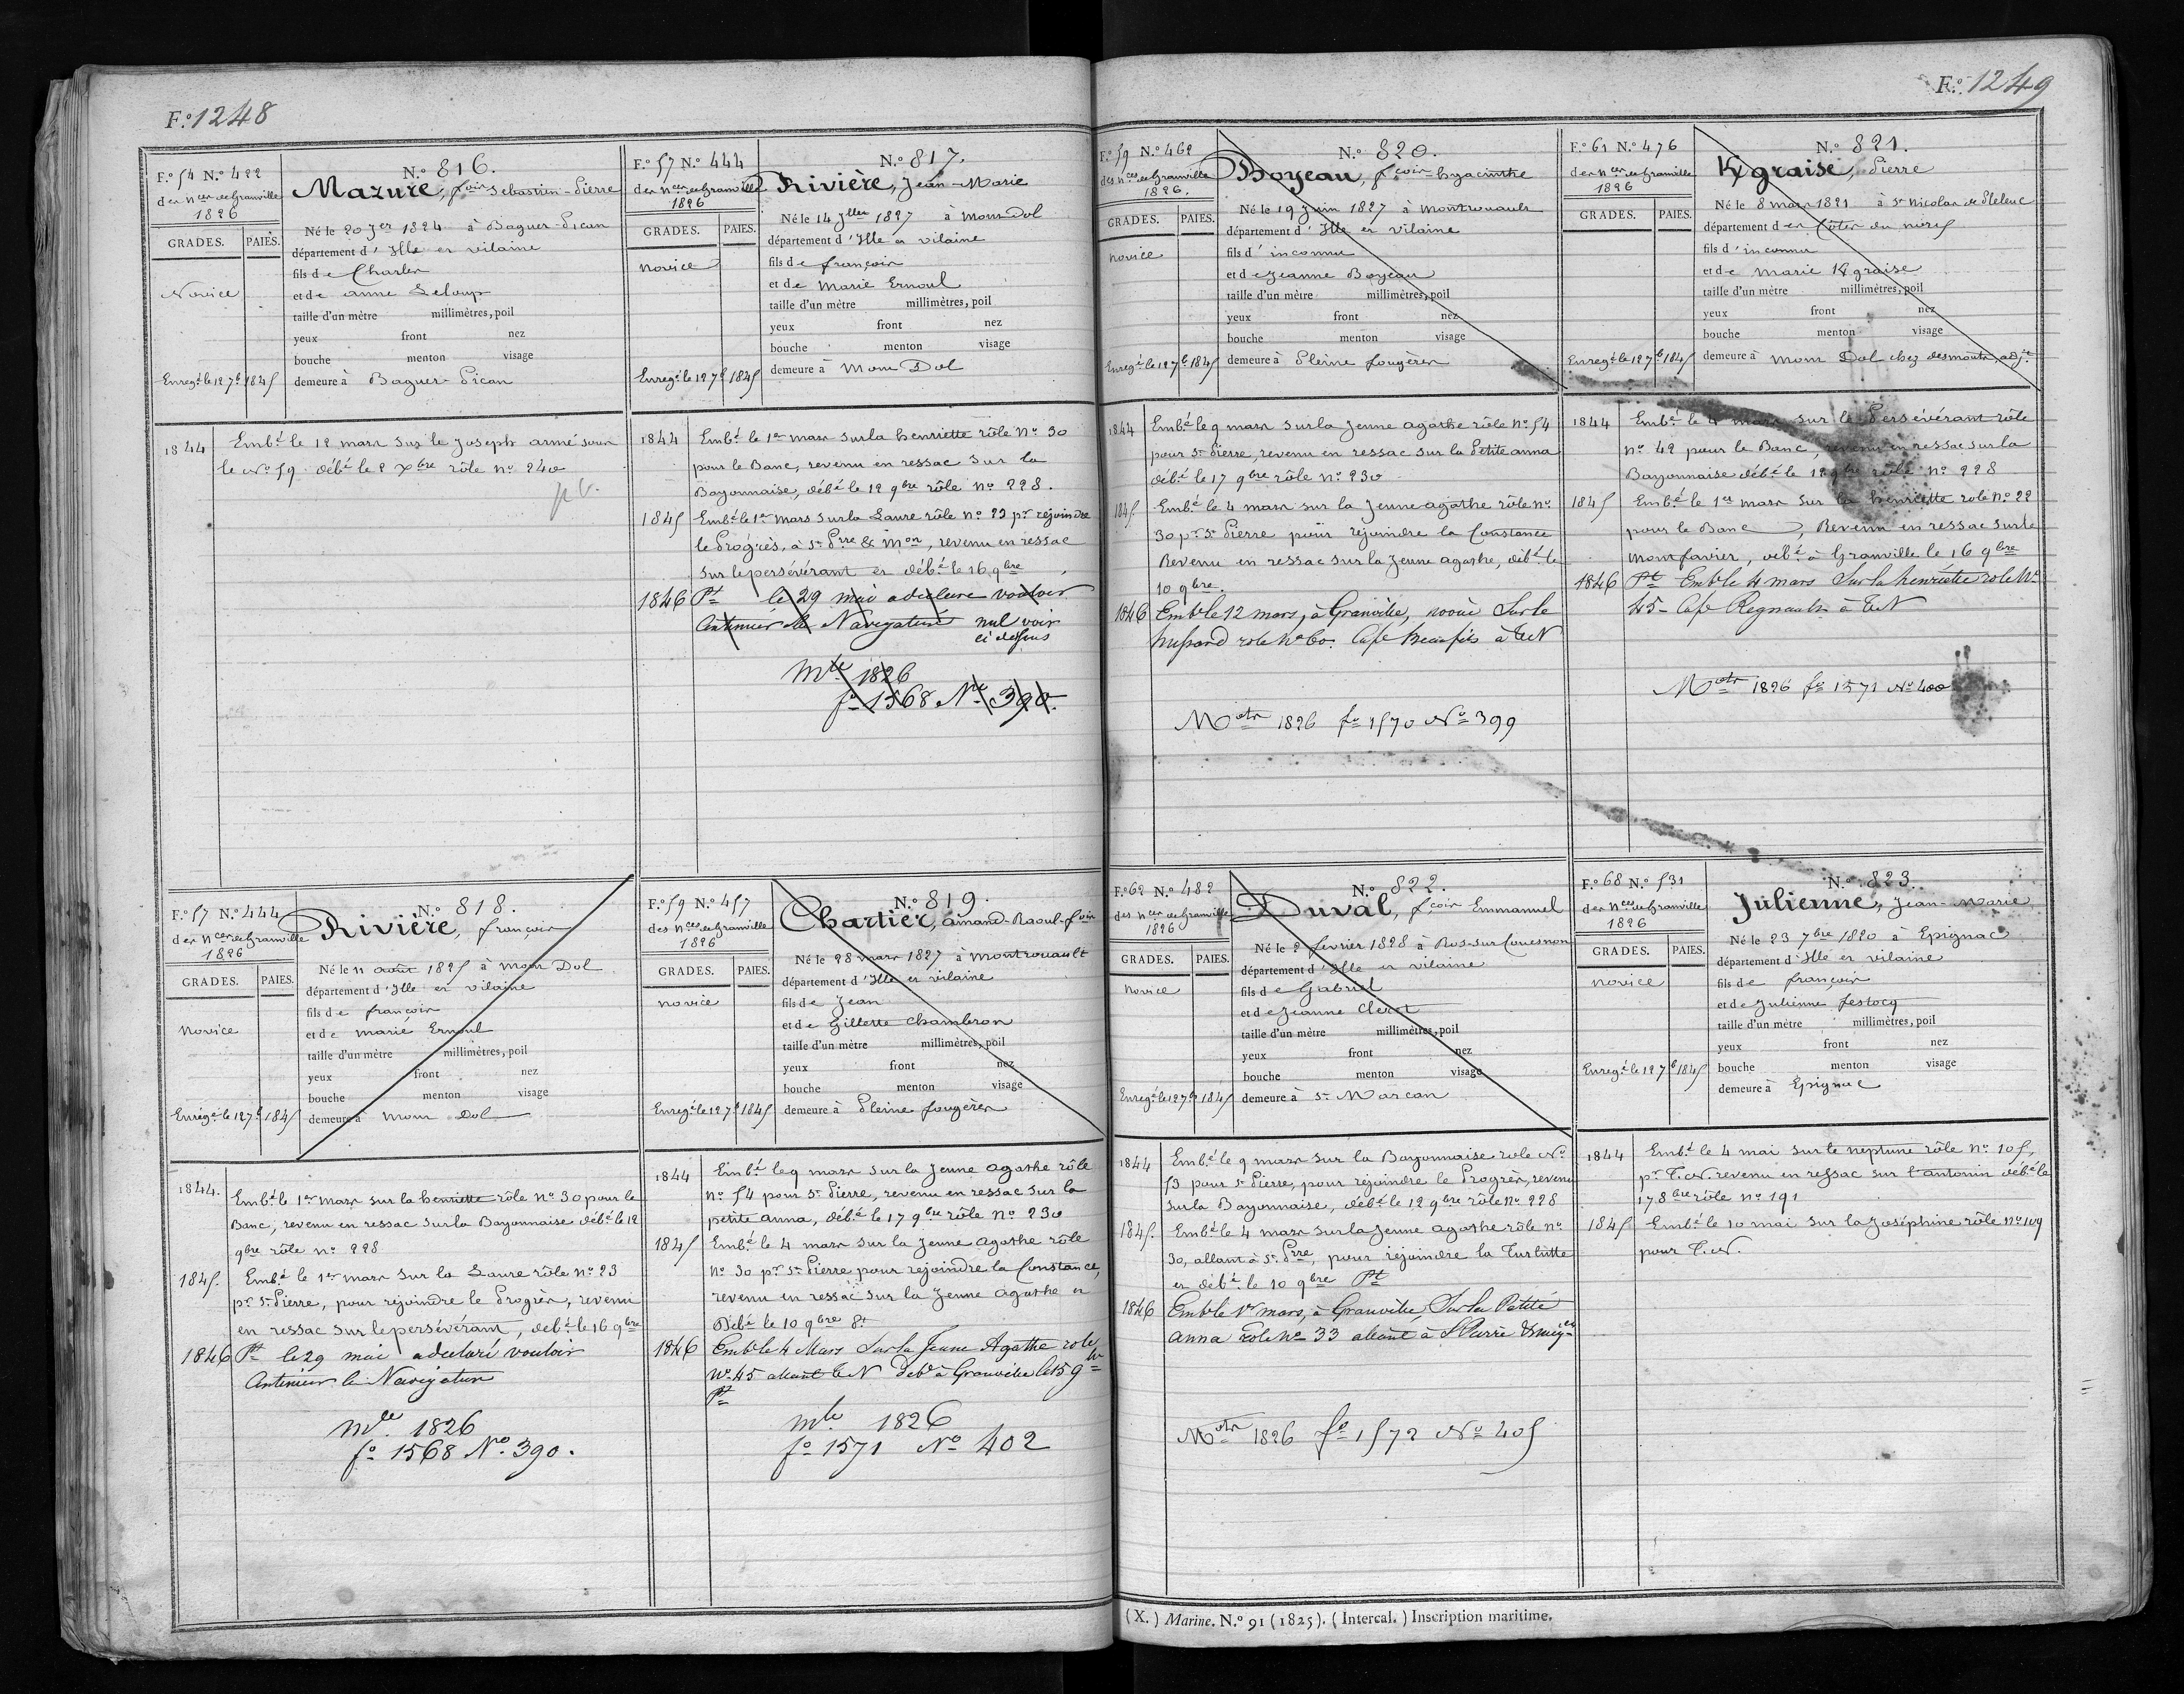 F.º 1248
F.º 54 N.º 422
des nces de Granville
1826
GRADES. PAIES.
Novice
Enregé le 12 7b 1845
N.º 816.
Mazure, fcois Sebastien-Pierre
Né le 20 Jer 1824 à Baguer-Pican
département d'Ille et vilaine
fils de Charles
et de anne Leloup
taille d'un mètre millimètres, poil
yeux front nez
bouche menton visage
demeure à Baguer-Pican
1844 Embé le 12 mars sur le Joseph armé sous
le No 59 débé le 2 Xbre rôle no 240
F.º 57 N.º 444
des nces de Granville
1826
GRADES. PAIES.
novice
Enregé le 12 7b 1845
N.º 817.
Rivière, Jean-Marie
Né le 14 Jller 1827 à Mont Dol
département d'Ille et vilaine
fils de françois
et de Marie Ernoul
taille d'un mètre millimètres, poil
yeux front nez
bouche menton visage
demeure à Mont Dol
1844 Embé le 1er mars sur la henriette rôle No 30
pour le Banc, revenu en ressac sur la
Bayonnaise, débé le 12 9bre rôle no 228.
1845 Embé le 1er mars sur la Laure rôle no 23 pr rejoindre
le Progrès, à St Prre & Mon, revenu en ressac
sur le persévérant et débé le 16 9bre
1846 Pt le 29 mai a déclaré vouloir
Continuer la Navigation nul voir
ci dessus
Mle 1826
fo 1568 No 390.
F.º 57 N.º 444
des nces de Granville
1826
GRADES. PAIES.
novice
Enregé le 12 7b 1845
N.º 818.
Rivière, françois
Né le 11 août 1825 à Mont Dol
département d'Ille et vilaine
fils de françois
et de marie Ernoul
taille d'un mètre millimètres, poil
yeux front nez
bouche menton visage
demeure à Mont Dol
1844. Embé le 1er mars sur la henriette rôle no 30 pour le
Banc, revenu en ressac sur la Bayonnaise débé le 12
9bre rôle no 228
1845. Embé le 1er mars sur la Laure rôle no 23
pr St Pierre, pour rejoindre le Progrès, revenu
en ressac sur le persévérant, debé le 16 9bre
1846 Pt le 29 mai a déclaré vouloir
Continuer la Navigation
Mle 1826
fo 1568 No 390.
F.º 59 N.º 457
des nces de Granville
1826
GRADES. PAIES.
novice
Enregé le 12 7b 1845
N.º 819.
Chartier, amand-Raoul-fcois
Né le 28 mars 1827 à Montrouault
département d'Ille et vilaine
fils de Jean
et de Gillette Chambron
taille d'un mètre millimètres, poil
yeux front nez
bouche menton visage
demeure à Pleine fougères
1844 Embé le 9 mars sur la Jeune agathe rôle
no 54 pour St Pierre, revenu en ressac sur la
petite anna, débé le 17 9bre rôle no 230
1845 Embé le 4 mars sur la Jeune agathe rôle
no 30 pr St Pierre pour rejoindre la Constance,
revenu en ressac sur la Jeune agathe et
Débé le 10 9bre Pt
1846 Emb le 4 Mars Sur la Jeune Agathe role
No 45 allant TeN debé à Granville le 15 9bre
Pt
mle 1826
fo 1571 No 402
F.º 1249
F.º 59 N.º 462
des nces de Granville
1826.
GRADES. PAIES.
novice
Enregé le 12 7b 1845
N.º 820.
Boyeau, fcois-hyacinthe
Né le 19 Juin 1827 à Montrouault
département d'Ille et vilaine
fils d'inconnu
et de Jeanne Boyeau
taille d'un mètre millimètres, poil
yeux front nez
bouche menton visage
demeure à Pleine fougères
1844 Embé le 9 mars sur la Jeune agathe rôle No 54
pour St Pierre, revenu en ressac sur la Petite anna
débé le 17 9bre rôle no 230
1845. Embé le 4 mars sur la Jeune agathe rôle no
30 pr St Pierre pour rejoindre la Constance
Revenu en ressac sur la Jeune agathe, débé le
10 9bre.
1846 Emb le 12 mars, à Granville, novice Sur le
rôle No 60. Cape Beaufils à TeN
Mtr 1826 fo 1570 No 399
F.º 61 N.º 476
des nces de Granville
1826
GRADES. PAIES.
Enregé le 12 7b 1845
N.º 821.
Kgraise, Pierre
Né le 8 mars 1821 à St Nicolas de Pleleuc
département des Côtes du nord
fils d'inconnu
et de Marie Kgraise
taille d'un mètre millimètres, poil
yeux front nez
bouche menton visage
demeure à Mont Dol chez desmonts, adjt
1844 Embé le 4 mars sur le Persévérant rôle
no 42 pour le Banc, revenu en ressac sur la
Bayonnaise débé le 12 9bre rôle no 228
1845 Embé le 1er mars sur la henriette role no 22
pour le Banc, Revenu en ressac sur le
Montfavier, débé à Granville le 16 9bre
1846 Pt Emb le 4 mars Sur la henriette role No
45 - Cape Regnault à TeN
Mtr 1826 fo 1571 No 400
F.º 62 N.º 482
des nces de Granville
1826
GRADES. PAIES.
novice
Enregé le 12 7b 1845
N.º 822.
Duval, fcois Emmanuel
Né le 2 fevrier 1828 à Ros-sur-Couesnon
département d'Ille et vilaine
fils de Gabriel
et de Jeanne Cleret
taille d'un mètre millimètres, poil
yeux front nez
bouche menton visage
demeure à St Marcan
1844 Embé le 9 mars sur la Bayonnaise role No
53 pour St Pierre, pour rejoindre le Progrès, revenu
sur la Bayonnaise, débé le 12 9bre rôle no 228
1845. Embé le 4 mars sur la Jeune agathe rôle no
30, allant à St Prre, pour rejoindre la Turlutte
et débé le 10 9bre Pt
1846 Emb le 1er mars, à Granville, Sur la Petite
anna Role No 33 allant à St Pierre & miqon
Mtr 1826 fo 1572 No 405
F.º 68 N.º 531
des nces de Granville
1826
GRADES. PAIES.
novice
Enregé le 12 7b 1845
N.º 823.
Julienne, Jean-Marie
Né le 23 7bre 1820 à Epignac
département d'Ille et vilaine
fils de françois
et de Julienne festocq
taille d'un mètre millimètres, poil
yeux front nez
bouche menton visage
demeure à Epignac
1844 Embé le 4 mai sur le neptune rôle no 105,
pr T.N. revenu en ressac sur l'antonin débé le
17 8bre rôle no 191
1845 Embé le 10 mai sur la Joséphine rôle no 109
pour T.N.
(X.) Marine. N.º 91 (1825). (Intercal.) Inscription maritime.